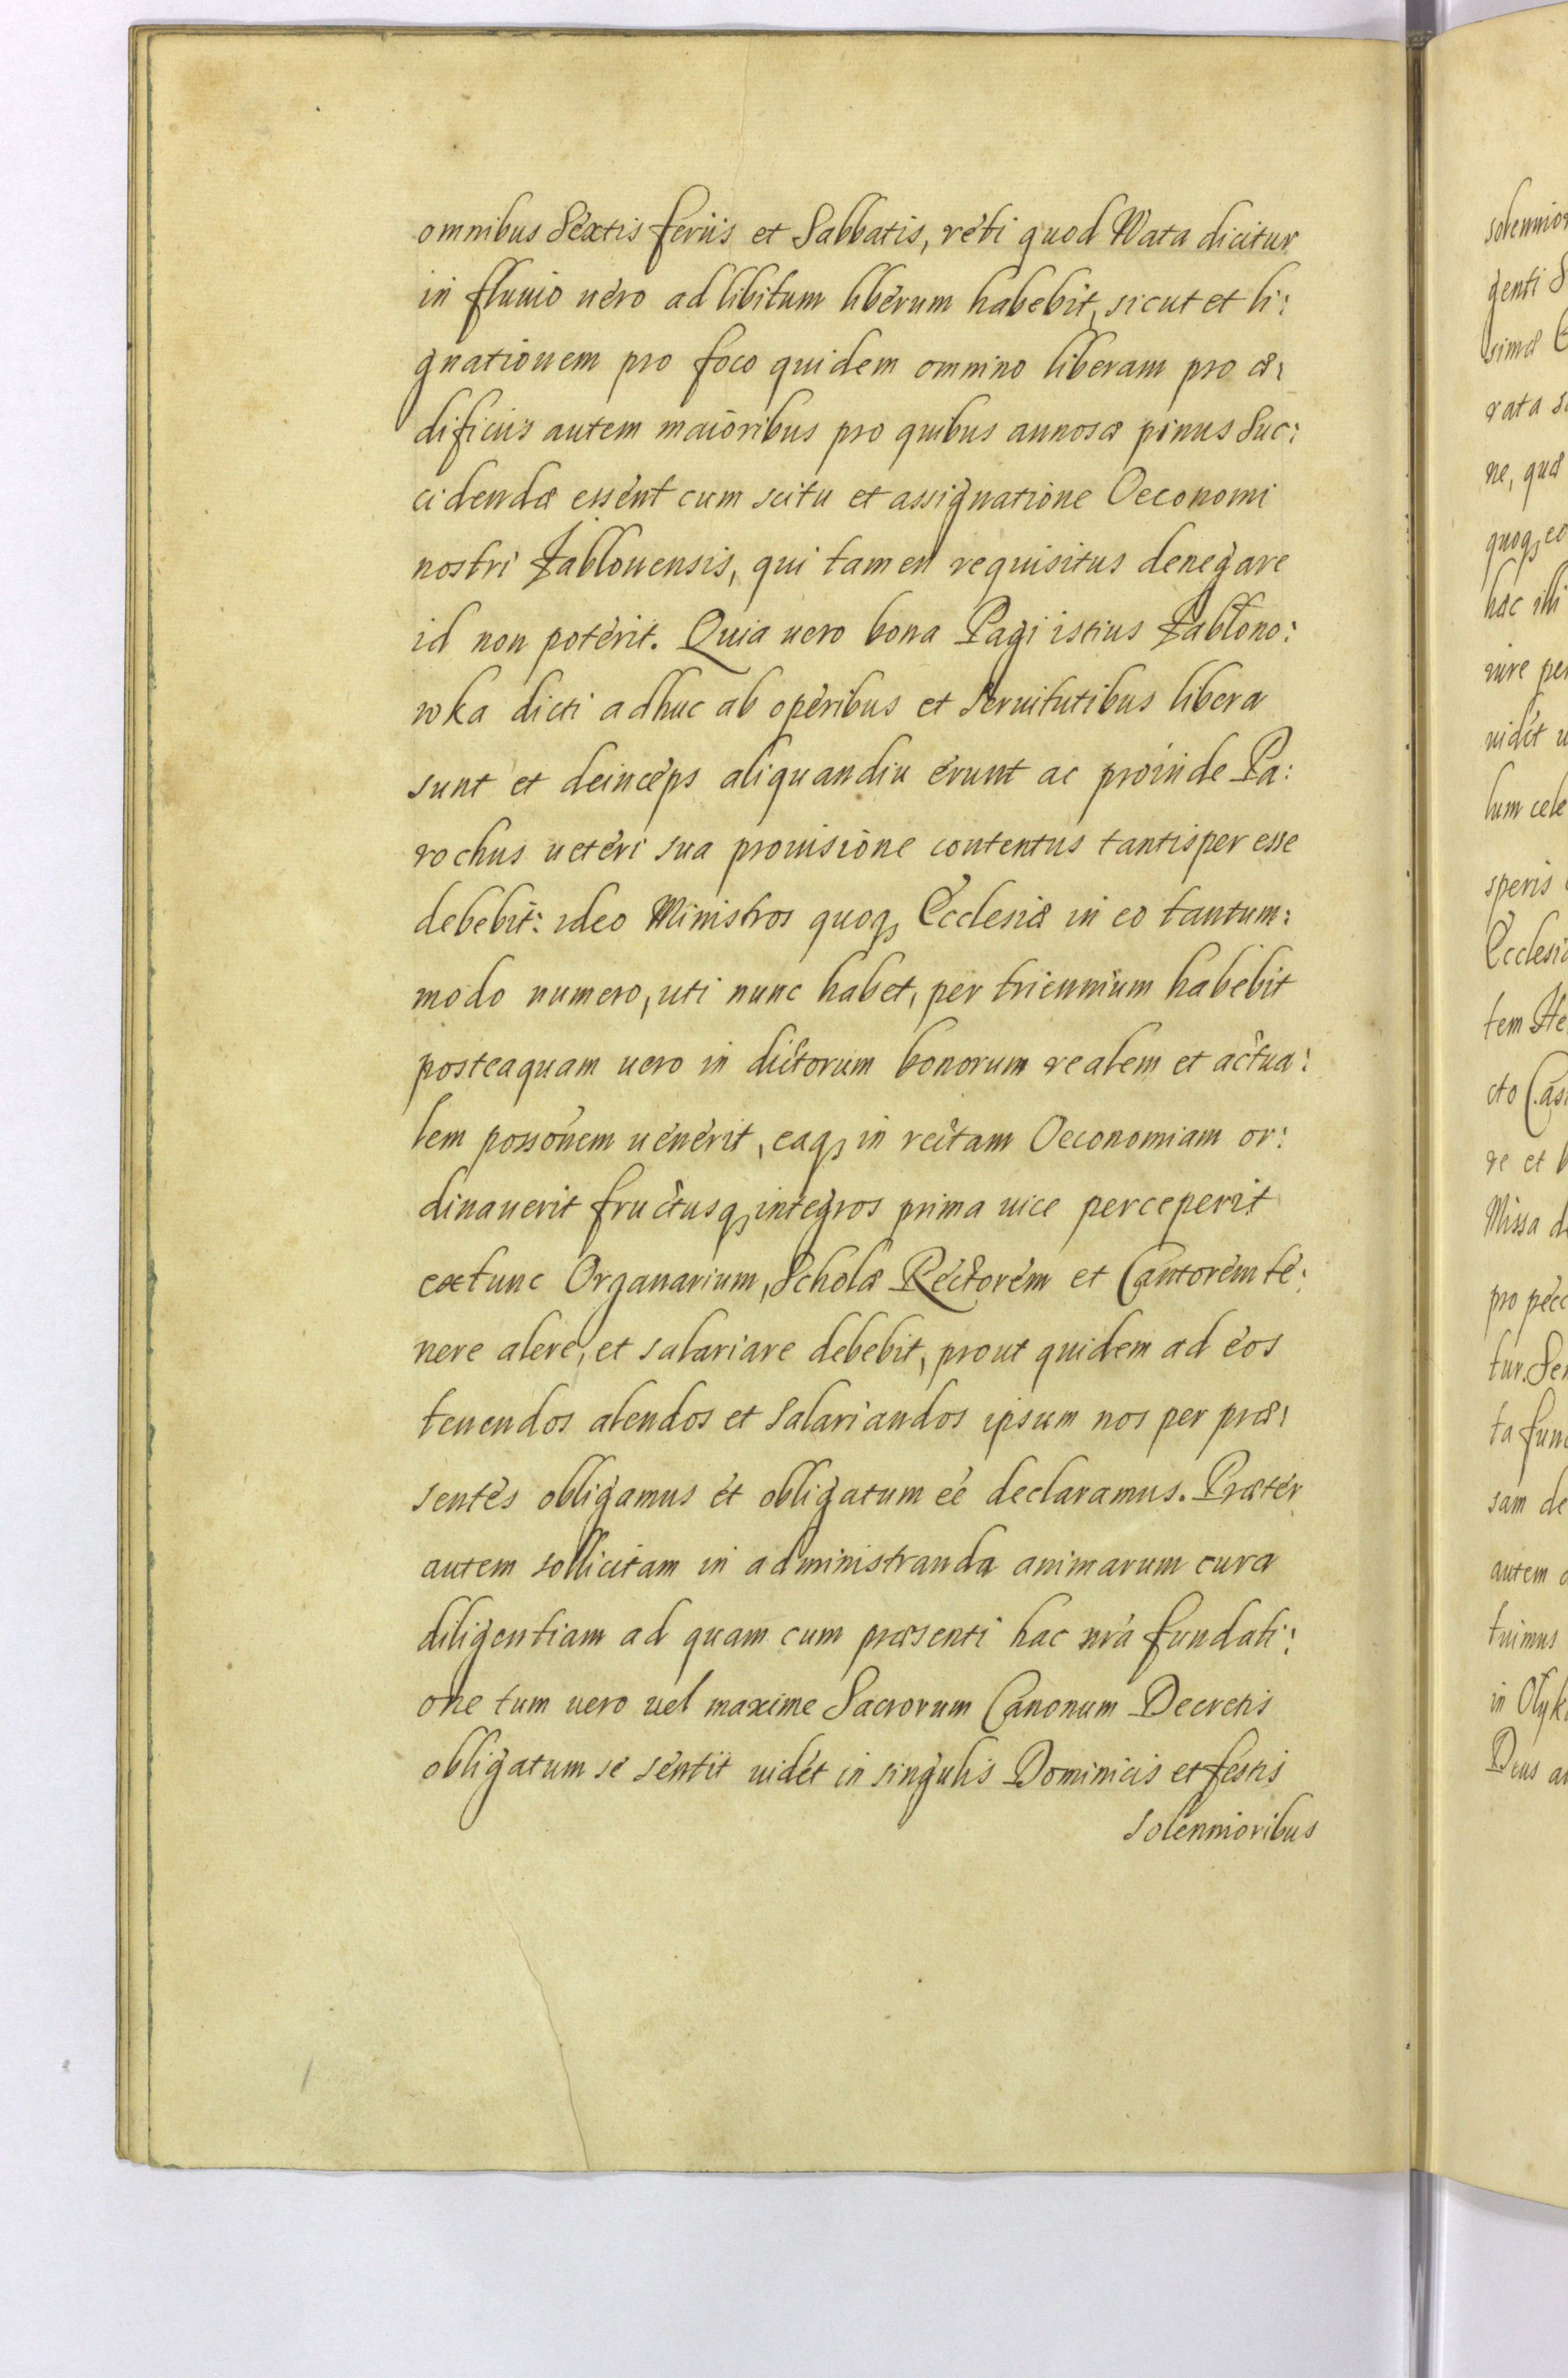 omnibus Sextis feriis et Sabbatis, reti quod Wata dicitur
in fluuio uero ad libitum liberum habebit, sicut et li:
gnationem pro foco quidem omnino liberam pro æ:
dificiis autem maioribus pro quibus annosæ pinus suc:
cidendæ essent cum scitu et assignatione Oeconomi
nostri Jablonensis, qui tamen requisitus denegare
id non poterit. Quia uero bona Pagi istius Jabłono:
wka dicti adhuc ab operibus et seruitutibus libera
sunt et deinceps aliquandiu erunt ac proinde Pa:
rochus ueteri sua prouisione contentus tantisper esse
debebit: ideo Ministros quoq; Ecclesiæ in eo tantum:
modo numero, uti nunc habet, per triennium habebit
posteaquam uero in dictorum bonorum realem et actua:
lem possonem uenerit, eaq; in rectam Oeconomiam or:
dinauerit fructusq; integros prima uice perceperit
extunc Organarium, Scholæ Rectorem et Cantorem te:
nere alere, et salariare debebit, prout quidem ad eos
tenendos alendos et salariandos ipsum nos per præ:
sentes obligamus et obligatum eé declaramus. Præter
autem sollicitam in administranda animarum cura
diligentiam ad quam cum præsenti hac nrà fundati:
one tum uero uel maxime Sacrorum Canonum Decretis
obligatum se sentit uidet in singulis Dominicis et festis
solennioribus